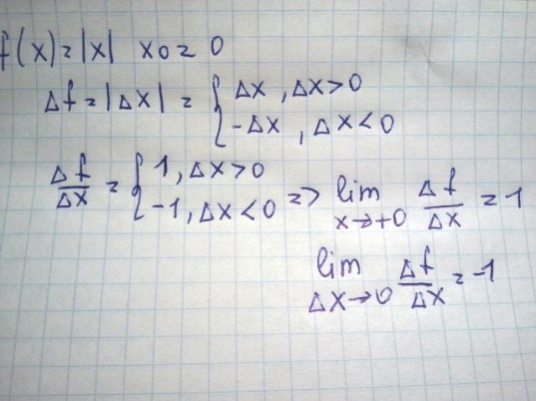 f(x)=|x| x0=0
Δf=|Δx|={Δx, Δx>0
-Δx, Δx<0
Δf/Δx={1, Δx>0
-1, Δx<0 => lim x→+0 Δf/Δx=1
lim Δx→0 Δf/Δx=-1